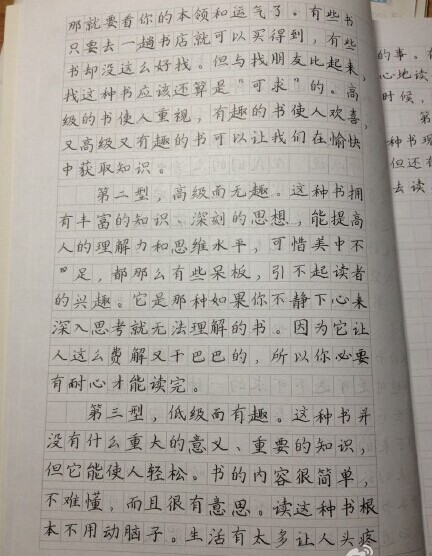 那就要看你的本领和运气了。有些书
只要去一趟书店就可以买得到，有些
书却没这么好找。但与找朋友比起来，
找这种书应该还算是“可求”的。高
级的书使人重视，有趣的书使人欢喜，
又高级又有趣的书可以让我们在愉快
中获取知识。
第二型，高级而无趣。这种书拥
有丰富的知识、深刻的思想，能提高
人的理解力和思维水平，可惜美中不
足，都那么有些呆板，引不起读者
的兴趣。它是那种如果你不静下心来
深入思考就无法理解的书。因为它让
人这么费解又干巴巴的，所以你必要
有耐心才能读完。
第三型，低级而有趣。这种书并
没有什么重大的意义、重要的知识，
但它能使人轻松。书的内容很简单，
不难懂，而且很有意思。读这种书根
本不用动脑子。生活有太多让人头疼
的事。
心地读
时候，
第
种书现
但还在
去读